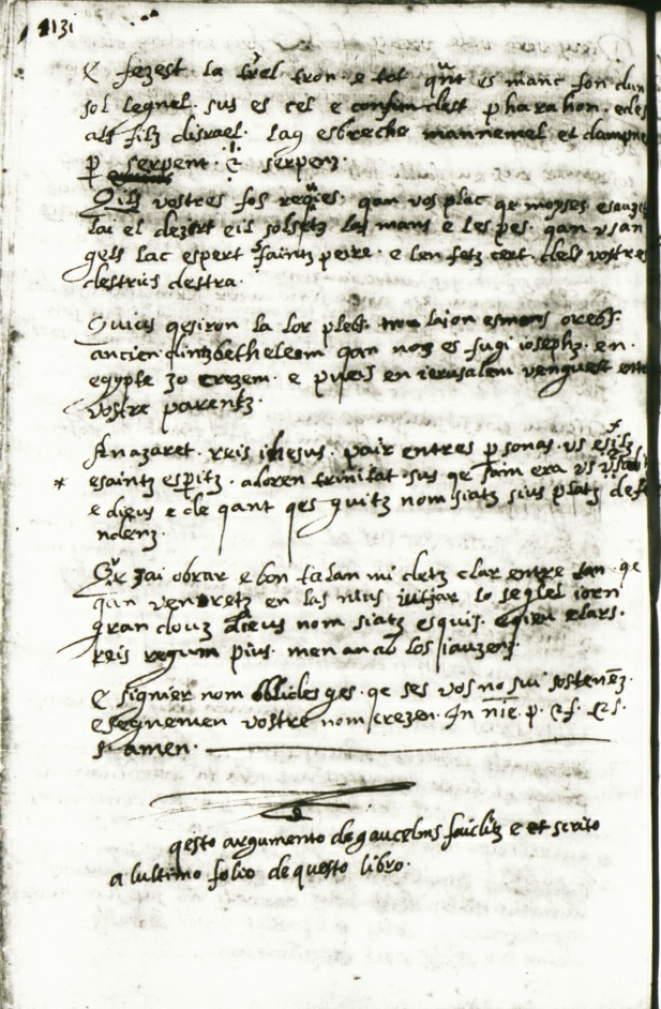 131
E fezest la trel tron e tot qnt es manc fon dun
sol legnel sus es cel e confundest pharahon edes
als filz disrael lag esbreche mannemel et dampne
p serpent serpenz
Qils vostres fos regies qan vos plac qe moyses esauzit
lai el dezert eil solsetz las mans e les pes qan vsan
gels lac espert saintz peire e len fetz cert dels vostres
destriis destra
qesiron la lor plebs oreb
ancien qintz betheleem qan noz es fugi iosephz en
egypte zo crezem e pueis en ierusalem venguest entre
vostre parentz
A nazaret reis ihesus pair entres p sonas vs es filz
* esaintz espitz adoren trinitat sus qe fam era vs
e dieus e de qant qes guitz nom siatz sius platz defe
ndenz
Qr zai obrar e bon talan mi detz clar entre tan qe
qan vendretz en las nius iutjar lo seglel iorn
gran douz dieus nom siatz esquis eqieu clars
reis regum pius men an ab los iauzenz
E signier nom oblides ges qe ses vos no sui sostenez
e segnemen vostre nom crezen In nie p
s amen
qesto argumento de gaucelms faiditz e et scrito
a lultimo folio de questo libro